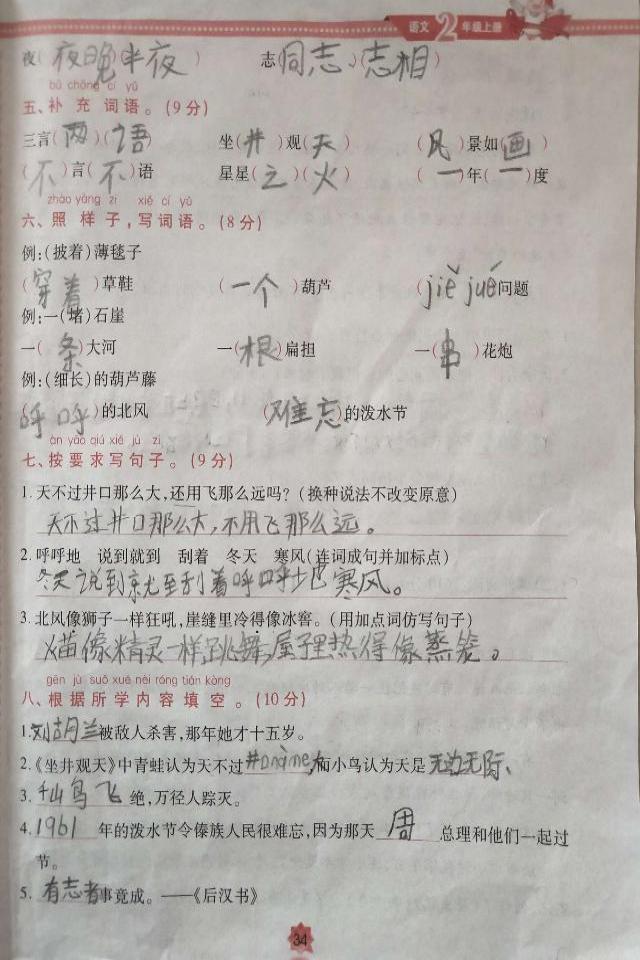 语文2年级上册
夜(夜晚)(半夜) 志(同志)(志相)
bǔ chōng cí yǔ
五、补充词语。(9分)
三言(两)(语) 坐(井)观(天) (风)景如(画)
(不)言(不)语 星星(之)(火) (一)年(一)度
zhào yàng zi xiě cí yǔ
六、照样子,写词语。(8分)
例:(披着)薄毯子
(穿着)草鞋 (一个)葫芦 (jiě jué)问题
例:一(堵)石崖
一(条)大河 一(根)扁担 一(串)花炮
例:(细长)的葫芦藤
(呼呼)的北风 (难忘)的泼水节
àn yāo qiú xiě jù zi
七、按要求写句子。(9分)
1.天不过井口那么大,还用飞那么远吗?(换种说法不改变原意)
天不过井口那么大,不用飞那么远。
2.呼呼地 说到就到 刮着 冬天 寒风(连词成句并加标点)
冬天说到就到刮着呼呼地寒风。
3.北风像狮子一样狂吼,崖缝里冷得像冰窖。(用加点词仿写句子)
猫像精灵一样跳舞,屋子里热得像蒸笼。
gēn jù suǒ xué nèi róng tián kòng
八、根据所学内容填空。(10分)
1.刘胡兰被敌人杀害,那年她才十五岁。
2.《坐井观天》中青蛙认为天不过井 ,而小鸟认为天是无边无际、
3.千山鸟飞绝,万径人踪灭。
4.1961年的泼水节令傣族人民很难忘,因为那天周总理和他们一起过
节。
5.有志者事竟成。——《后汉书》
34